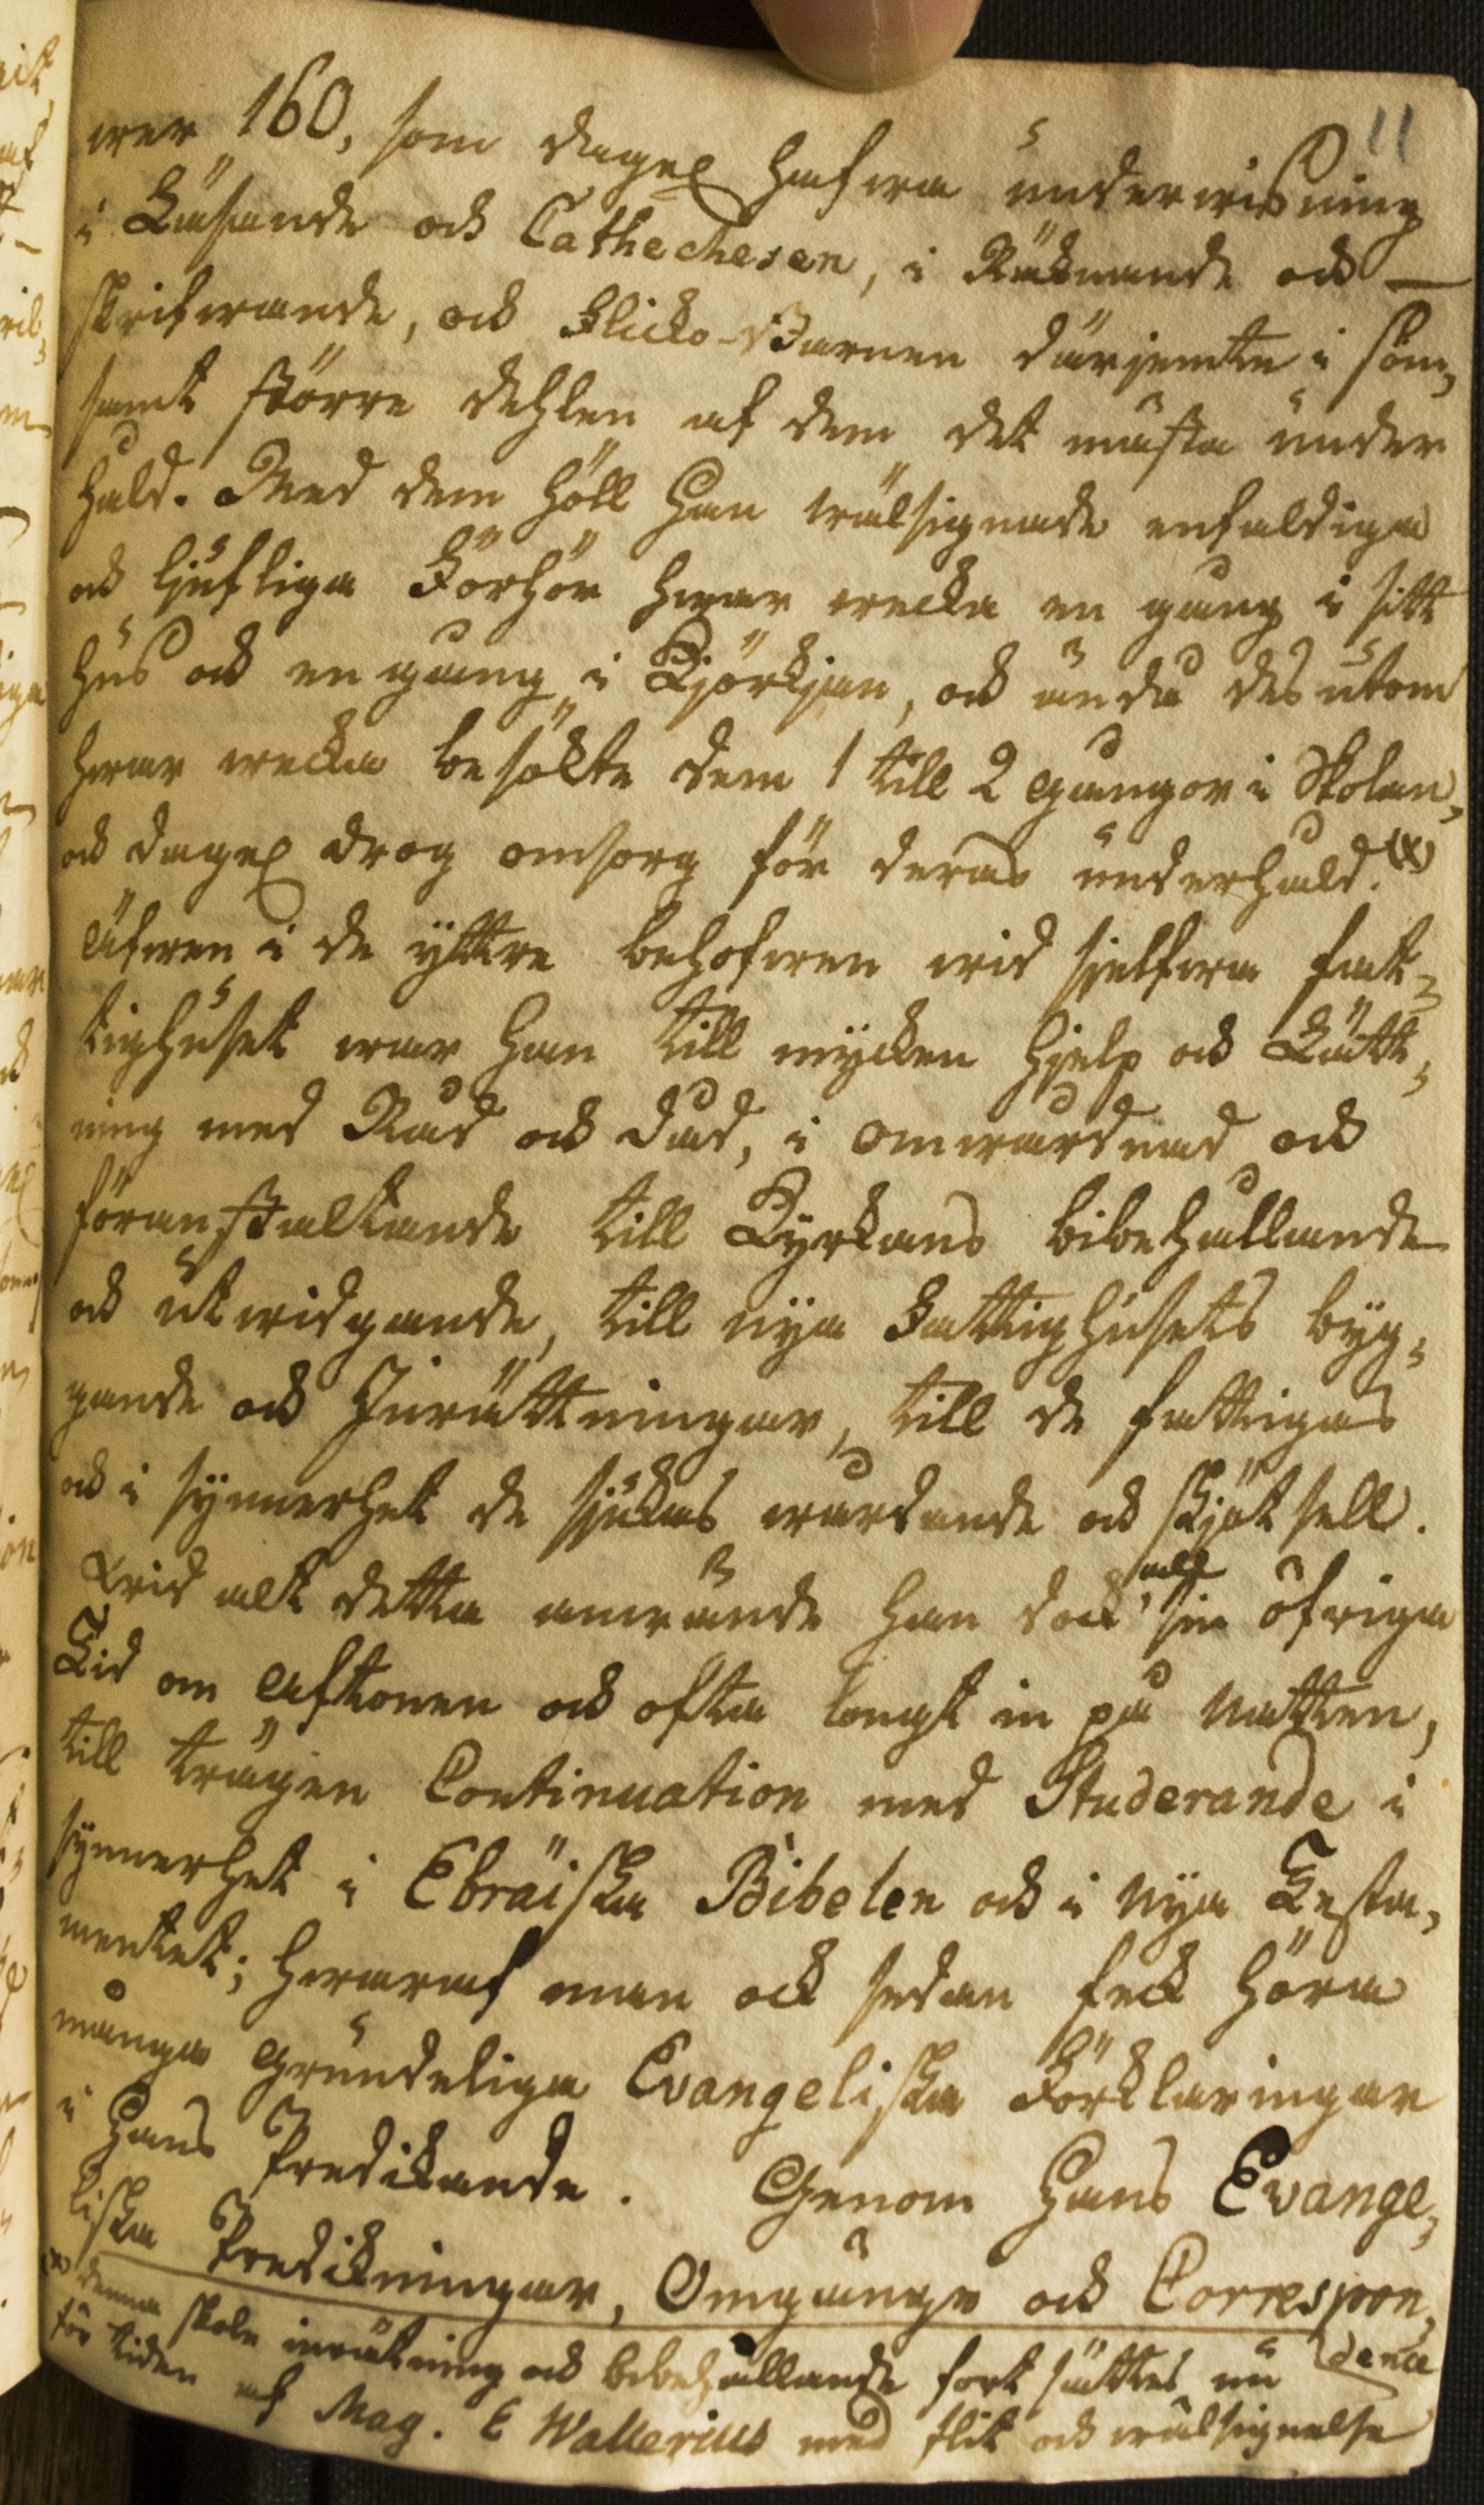 11
wer 160, som dagel. hafwa underwisning
i Läsande och Cathechesen, i Räknande och —
skrifwande, och Flicko-Barnen därjemte i söm,
samt större dehlen af dem det mästa under
hald. Med dem höll Han wälsignade enfaldiga
och ljufliga Förhör hwar wecka en gång i sitt
hus och en gång i Kjörkjan, och ändå des utom
hwar wecka besökte dem 1 till 2 gångor i Skolan,
och dagel. drog omsorg för deras underhåld. (x)
Äfwen i de yttre behofwen wid sjelfwa fat-
tighuset war han till mycken hjelp och Lätt-
ning med Råd och Dåd, i omwårdnad och
föranstaltande till Kyrkans bibehållande
och utwidgande, till nya Fattighusets byg-
gande och Inrättningar, till de fattigas
och i synnerhet de sjukas wårdande och skjötsell.
Wid alt detta anwände han dock all sin öfriga
Tid om Aftonen och ofta långt in på Natten,
till trägen Continuation med Studerande i
synnerhet i Ebräiska Bibelen och i Nya Testa-
mentet; hwaraf man ock sedan feck höra
många Grundeliga Evangeliska Förklaringar
i Hans Predikande. Genom Hans Evange-
liska Predikningar, Omgänge och Correspon-
dence
(x) Denna Skole inrätning och bibehållande fortsättes nu
för tiden af Mag. E Wallerius med flit och wälsignelse